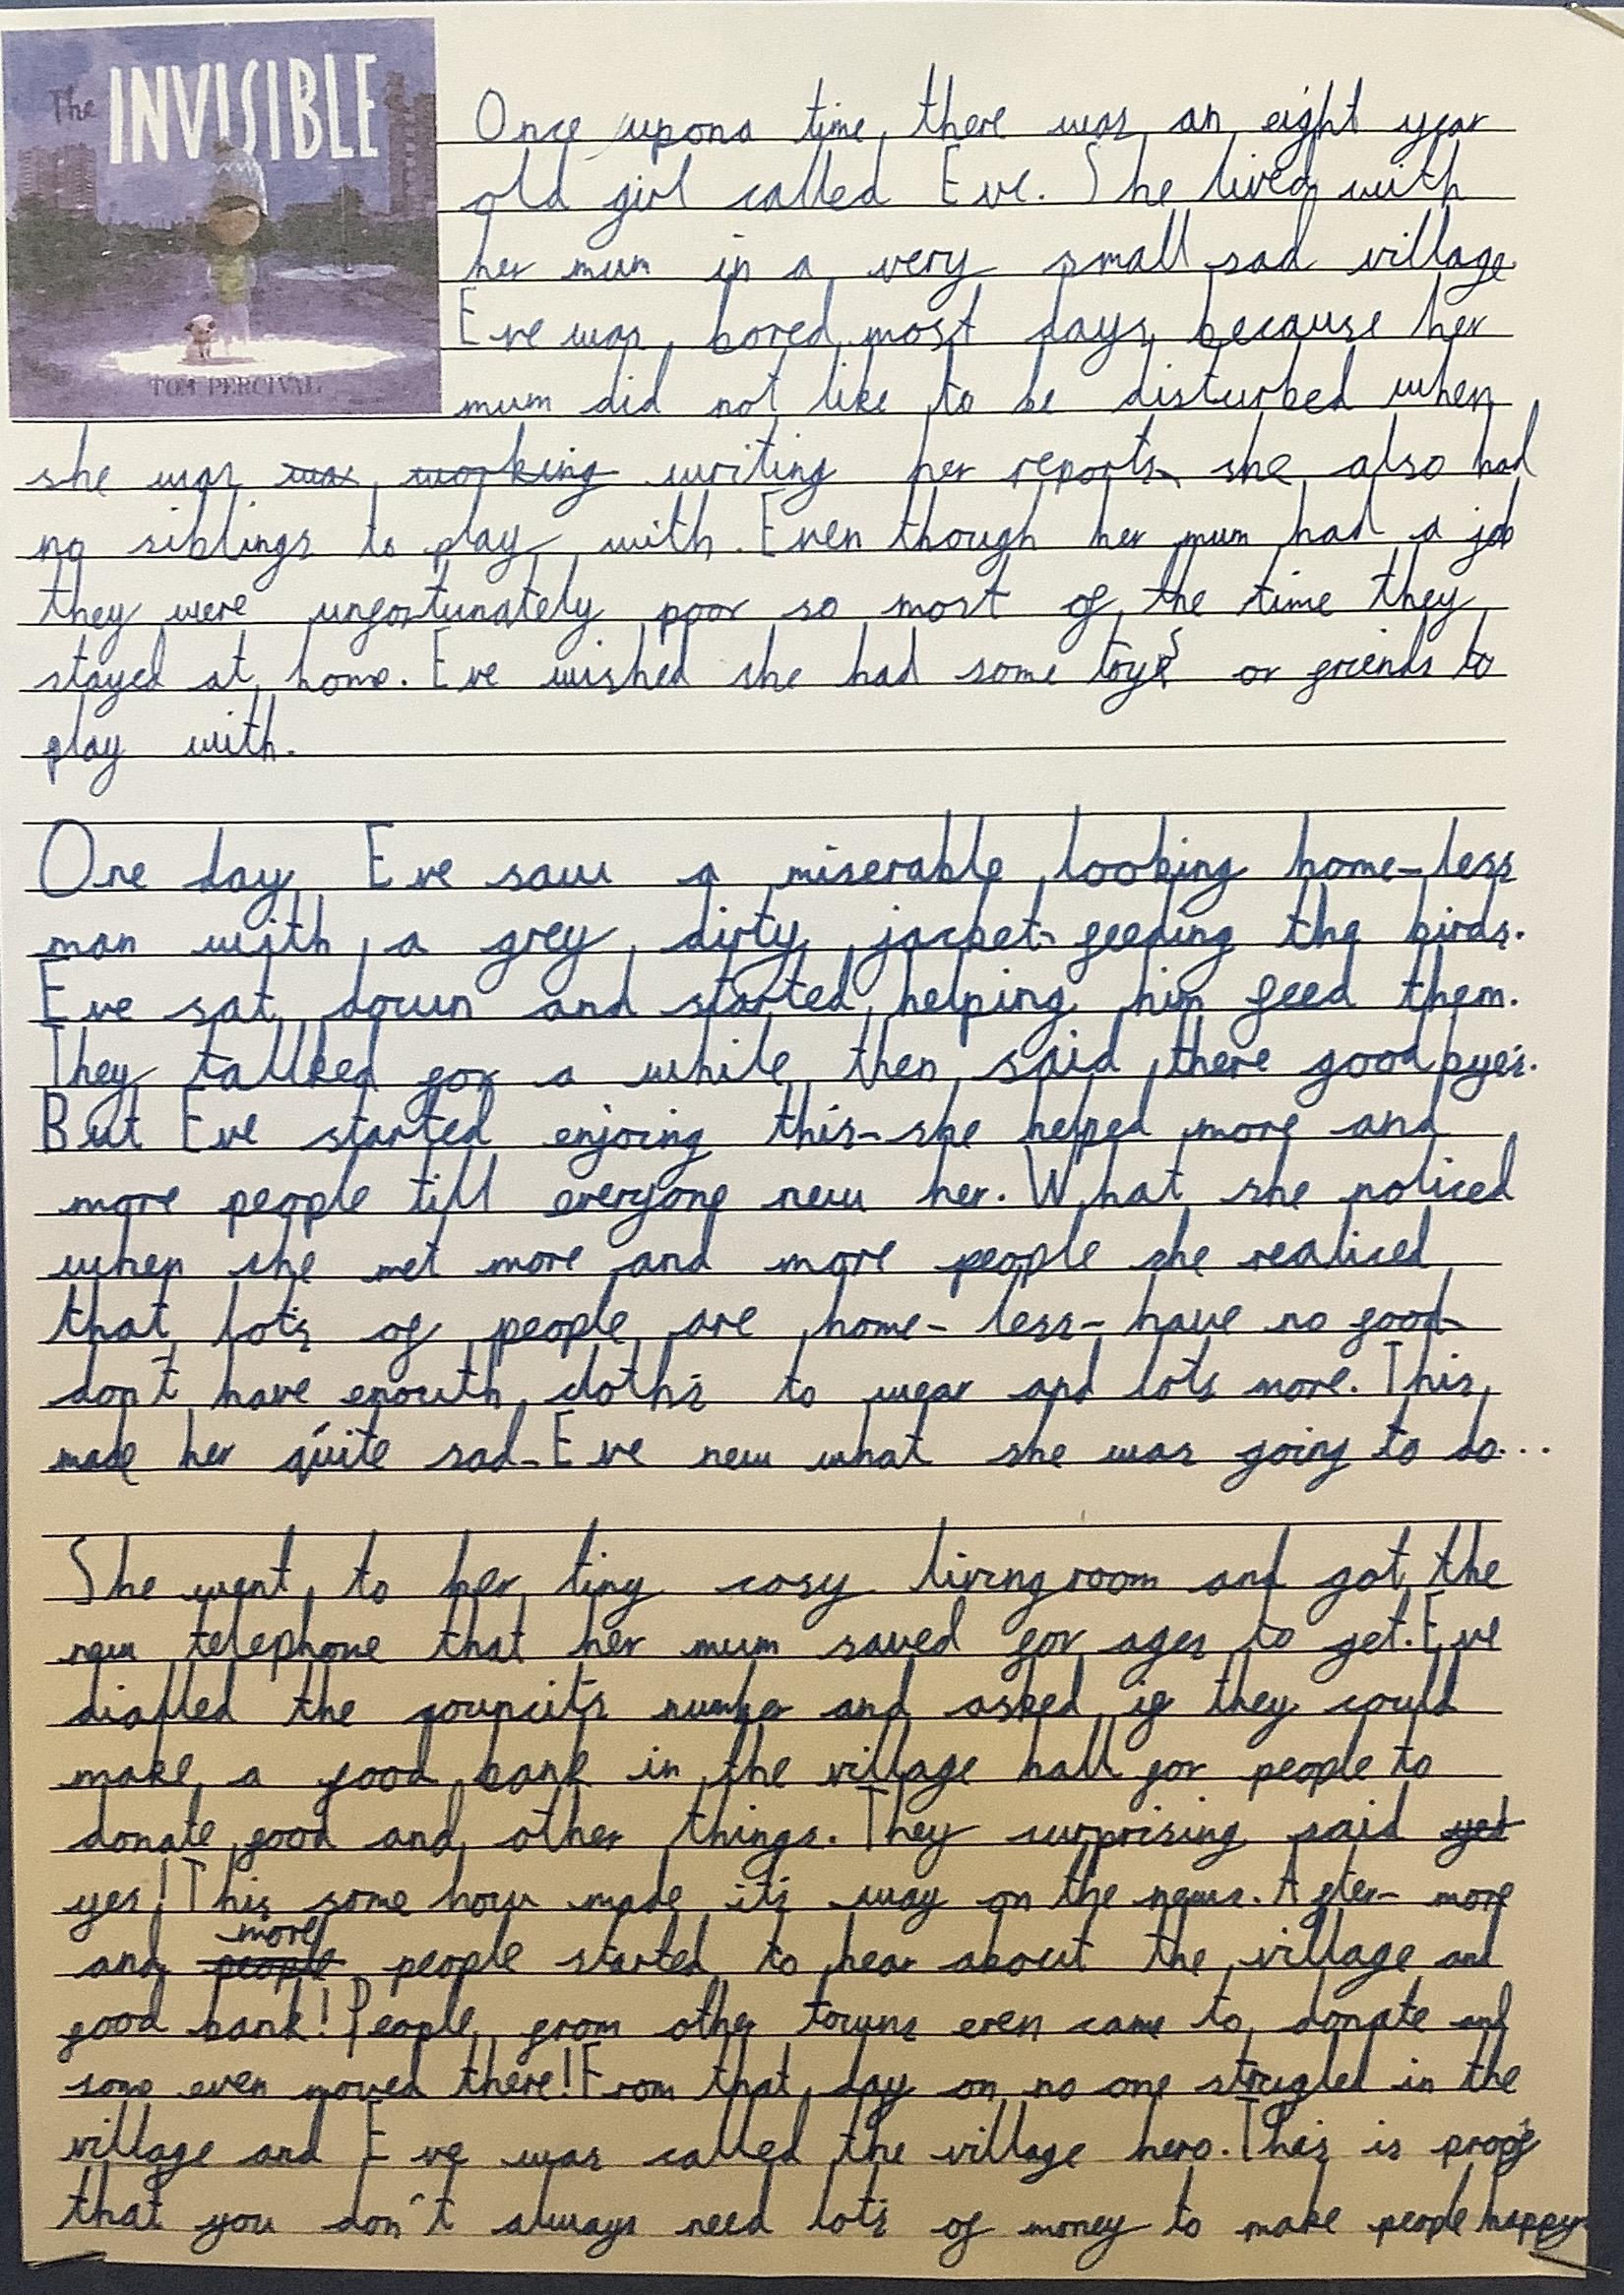 The INVISIBLE
TOM PERCIVAL
Once upona time there was an eight year
old girl called Eve. She lived with
her mum in a very small sad village
Eve was bored most days because her
mum did not like to be disturbed when
she was was working writing her reports she also had
no siblings to play with. Even though her mum had a job
they were unfortunately poor so most of the time they
stayed at home. Eve wished she had some toys or friends to
play with.
One day Eve saw a miserable looking home-less
man with a grey dirty jacket feeding the birds.
Eve sat down and started helping him feed them.
They tallked for a while then said there good bye's.
But Eve started enjoing this-she helped more and
more people till everyone new her. What she noticed
when she met more and more people she realiced
that lot's of people are home-less-have no food-
don't have enouth cloth's to wear and lots more. This
made her quite sad-Eve new what she was going to do...
She went to her tiny cosy living room and got the
new telephone that her mum saved for ages to get. Eve
dialled the council's number and asked if they could
make a food bank in the village hall for people to
donate food and other things. They surprising said yes
yes! This some how made it's way on the news. After more
more
and people people started to hear about the village and
food bank! People from other towns even came to donate and
some even moved there! From that day on no one strugled in the
village and Eve was called the village hero. This is proof
that you don't always need lot's of money to make people happy.